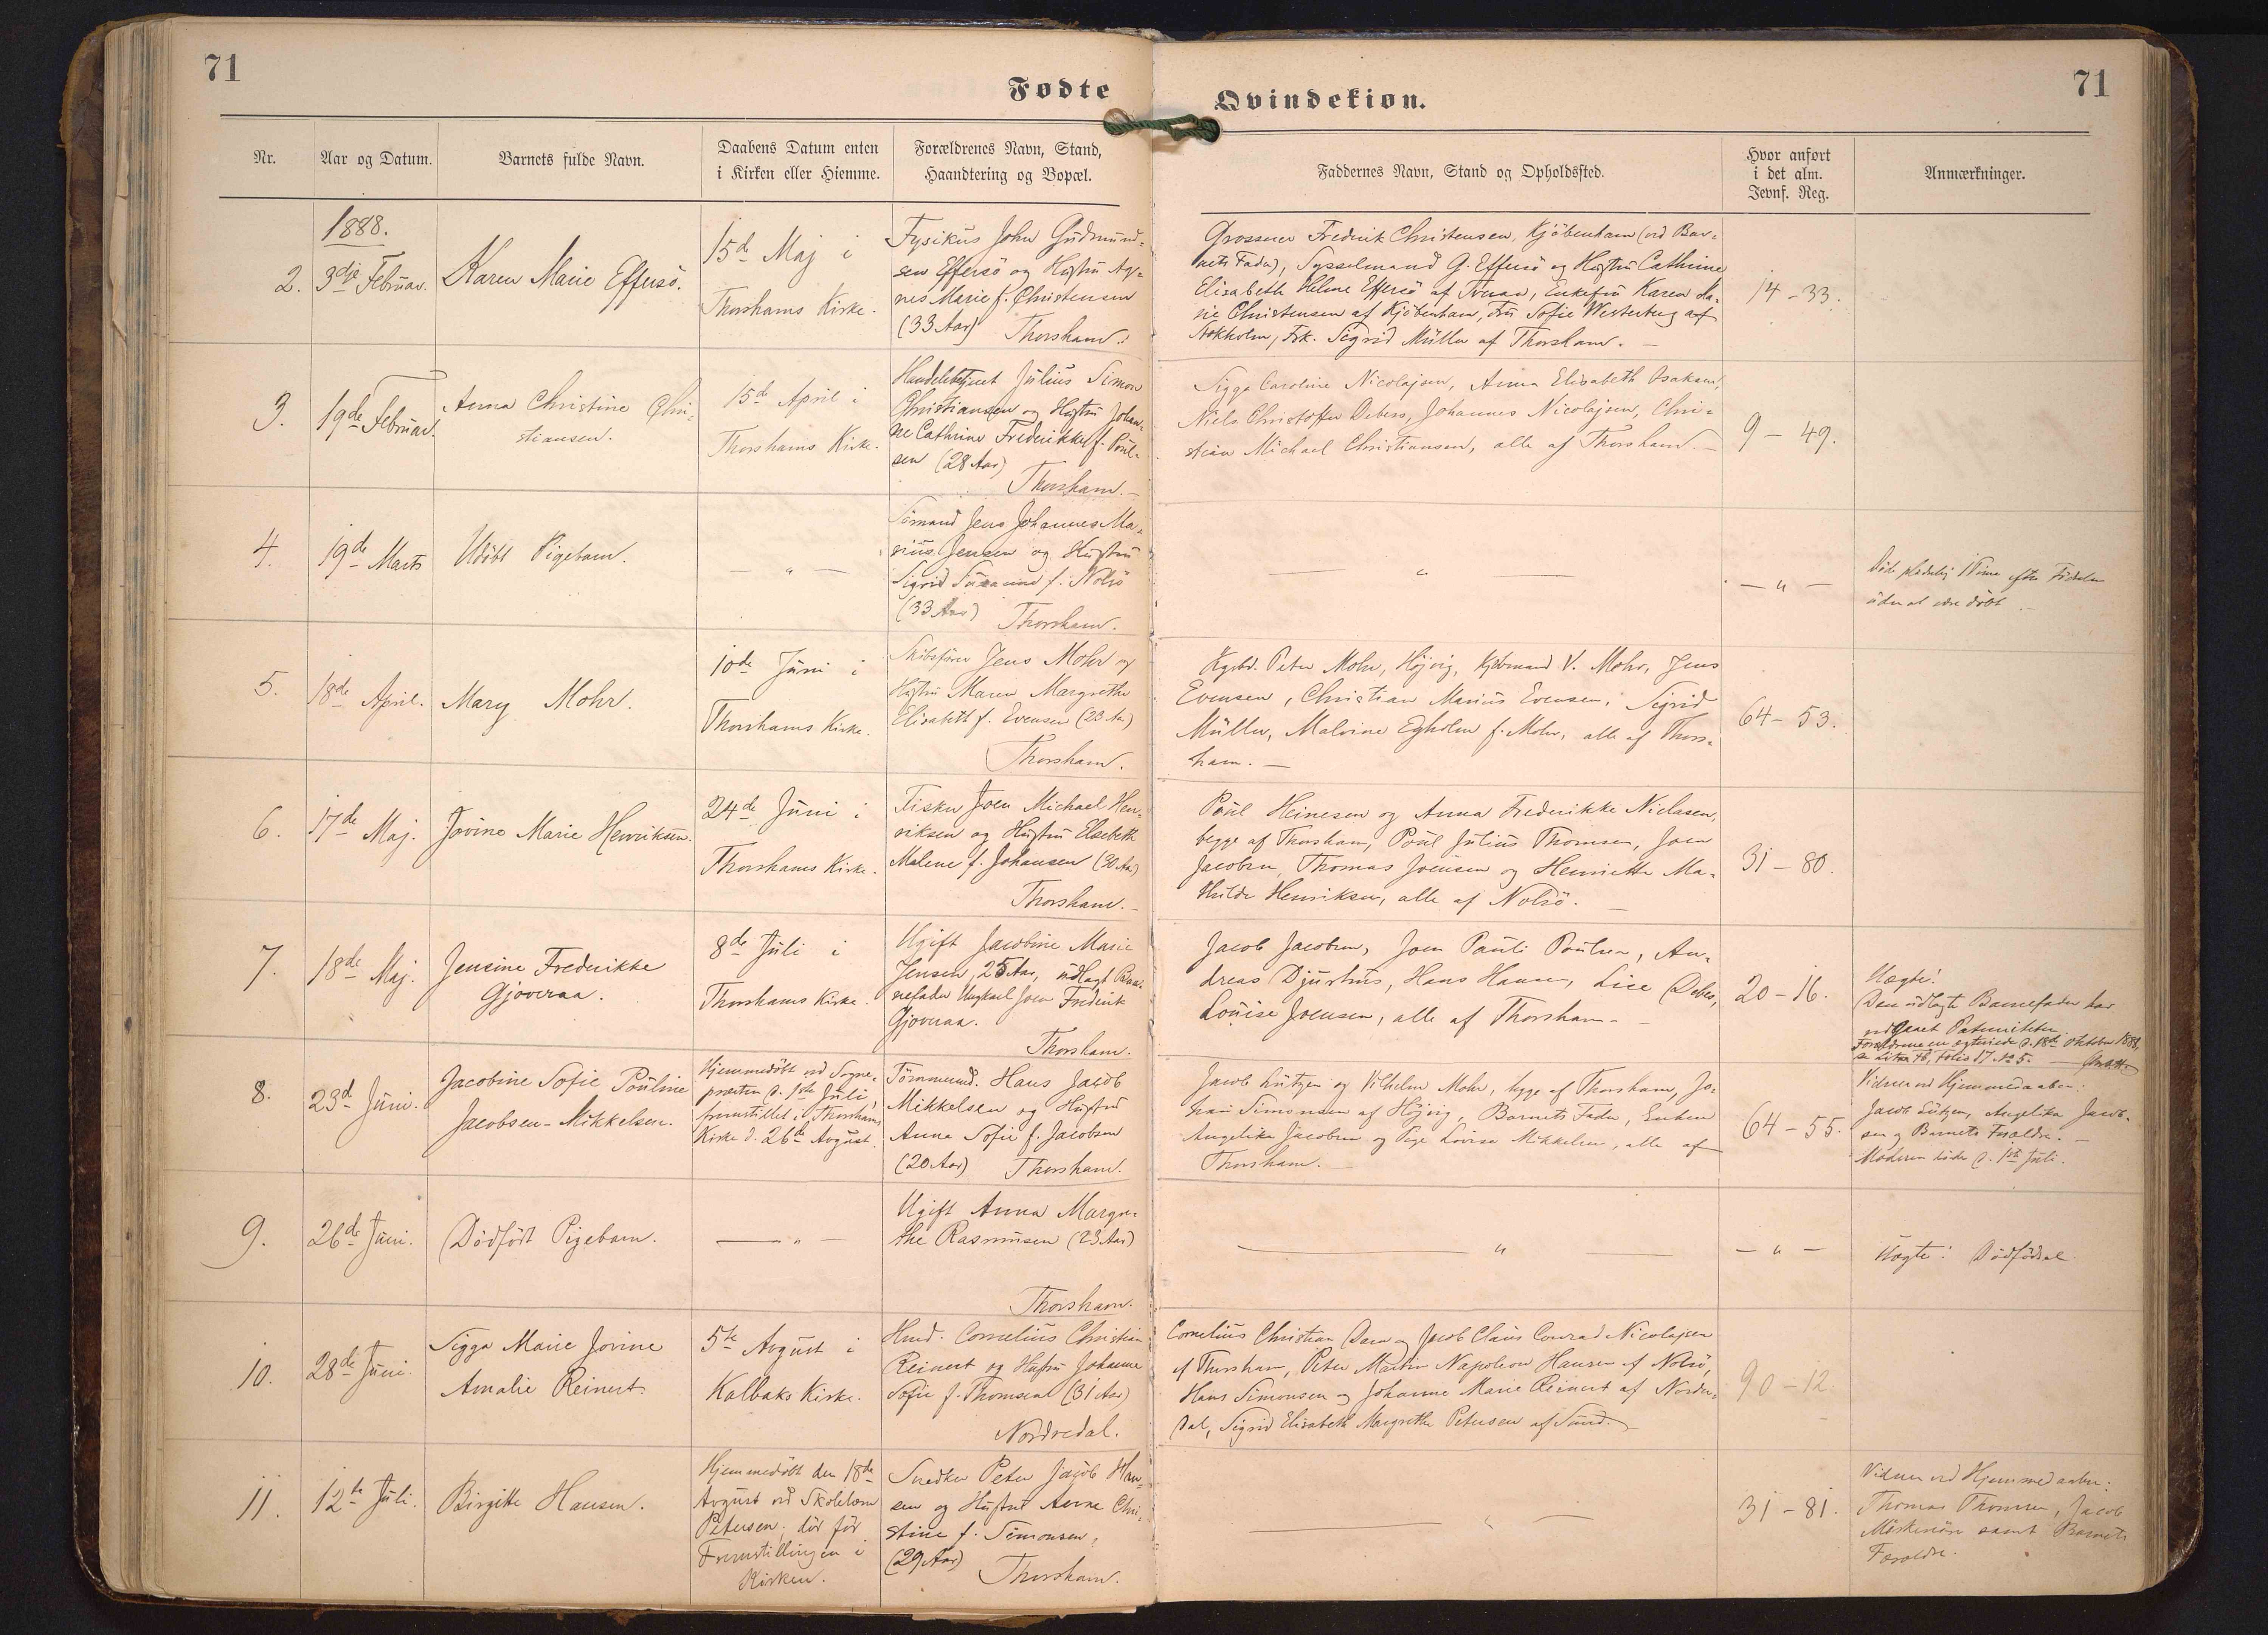 71
71
Fødte
Qvindekiøn.
Nr.
Aar og Datum.
Barnets fulde Navn.
Daabens Datum enten
i Kirken eller Hiemme.
Forældrenes Navn, Stand,
Haandtering og Bopæl.
Faddernes Navn, Stand og Opholdssted.
Hvor anført
i det alm.
Jevnf. Reg.
Anmærkninger.
1888.
2.
3dje Februar.
Karen Marie Effersö.
15de Maj i
Thorshavns Kirke.
Fysikus John Gudmund-
sen Effersö og Hustru Ag-
nes Marie f. Christensen
(33 Aar) Thorshavn.
Grosserer Frederik Christensen, Kjöbenhavn (ved Bar-
nets Fader), Sysselmand G. Effersö og Hustru Cathrine
Elisabeth Helene Effersö af Tveraa, Enkefru Karen Ma-
rie Christensen af Kjöbenhavn, Fru Sofie Westerberg af
Stokholm, Frk. Sigrid Müller af Thorshavn. —
14 - 33.
3.
19de Februar.
Anna Christine Chri-
stiansen.
15de April i
Thorshavns Kirke.
Handelsbetjent Julius Simon
Christiansen og Hustru Johan-
ne Cathrine Frederikke f. Poul-
sen (28 Aar)
Thorshavn. —
Sigga Caroline Nicolajsen, Anna Elisabeth Isaksen,
Niels Christoffer Debess, Johannes Nicolajsen, Chri-
stian Michael Christiansen, alle af Thorshavn. —
9 - 49.
4.
19de Marts
Udöbt Pigebarn.
— " —
Sömand Jens Johannes Ma-
rius Jensen og Hustru
Sigrid Susanne f. Nolsö
(33 Aar) Thorshavn.
— " —
— " —
Döde pludselig 1 Time efter Födselen
uden at være döbt. —
5.
18de April.
Mary Mohr.
10de Juni i
Thorshavns Kirke.
Skibsförer Jens Mohr og
Hustru Maren Margrethe
Elisabeth f. Evensen (23 Aar)
Thorshavn.
Kgsbd. Peter Mohr, Höjvig, Kjöbmand V. Mohr, Jens
Evensen, Christian Marius Evensen, Sigrid
Müller, Malvine Egholm f. Mohr, alle af Thors-
havn. —
64 - 53.
6.
17de Maj.
Jovine Marie Henriksen.
24de Juni i
Thorshavns Kirke.
Fisker Joen Michael Hen-
riksen og Hustru Elsebeth
Malene f. Johansen (30 Aar)
Thorshavn. —
Poul Heinesen og Anna Frederikke Niclasen,
begge af Thorshavn, Poul Julius Thomsen, Joen
Jacobsen, Thomas Joensen og Henriette Ma-
thilde Henriksen, alle af Nolsö. —
31 - 80.
7.
18de Maj.
Jensine Frederikke
Gjoveraa.
8de Juli i
Thorshavns Kirke.
Ugift Jacobine Marie
Jensen, 25 Aar, udlagt Bar-
nefader Ungkarl Joen Frederik
Gjoveraa.
Thorshavn.
Jacob Jacobsen, Joen Pauli Poulsen, An-
dreas Djurhuus, Hans Hansen, Lise Debes,
Louise Joensen, alle af Thorshavn. —
20 - 16.
Uægte!
Den udlagte Barnefader har
vedgaaet Paterniteten.
Forældrene ere ægteviede d. 18de Oktober 1888,
se Litra Folio 17 No 5. —
8.
23de Juni.
Jacobine Sofie Pouline
Jacobsen-Mikkelsen.
Hjemmedöbt ved Sogne-
præsten d. 1ste Juli,
fremstillet i Thorshavns
Kirke d. 26de Avgust.
Tömmermd. Hans Jacob
Mikkelsen og Hustru
Anna Sofie f. Jacobsen
(20 Aar) Thorshavn.
Jacob Lützen og Vilhelm Mohr, begge af Thorshavn, Jo-
han Simonsen af Höjvig, Barnets Fader, Enken
Angelika Jacobsen og Pige Lovise Mikkelsen, alle af
Thorshavn.
64 - 55.
Vidner ved Hjemmedaaben:
Jacob Lützen, Angelika Jacob-
sen og Barnets Forældre. —
Moderen döde d. 1ste Juli.
9.
26de Juni.
Dödfödt Pigebarn.
— " —
Ugift Anna Margre-
the Rasmusen (23 Aar)
Thorshavn.
— " —
— " —
Uægte! Dödfödsel
10.
28de Juni.
Sigga Marie Jovine
Amalie Reinert.
5te Avgust i
Kalbaks Kirke.
Hmd. Cornelius Christian
Reinert og Hustru Johanne
Sofie f. Thomsen (31 Aar)
Nordredal.
Cornelius Christian Dam og Jacob Claus Conrad Nicolajsen
af Thorshavn, Peter Martin Napoleon Hansen af Nolsö,
Hans Simonsen og Johanne Marie Reinert af Nordre-
dal, Sigrid Elisabeth Margrethe Petersen af Sund. —
90 - 12.
11.
12te Juli.
Birgitte Hansen.
Hjemmedöbt den 18de
Avgust ved Skolelærer
Petersen; död för
Fremstillingen i
Kirken.
Snedker Peter Jacob Han-
sen og Hustru Anna Chri-
stine f. Simonsen,
(29 Aar) Thorshavn.
— " —
31 - 81.
Vidner ved Hjemmedaaben:
Thomas Thomsen, Jacob
samt Barnets
Forældre.